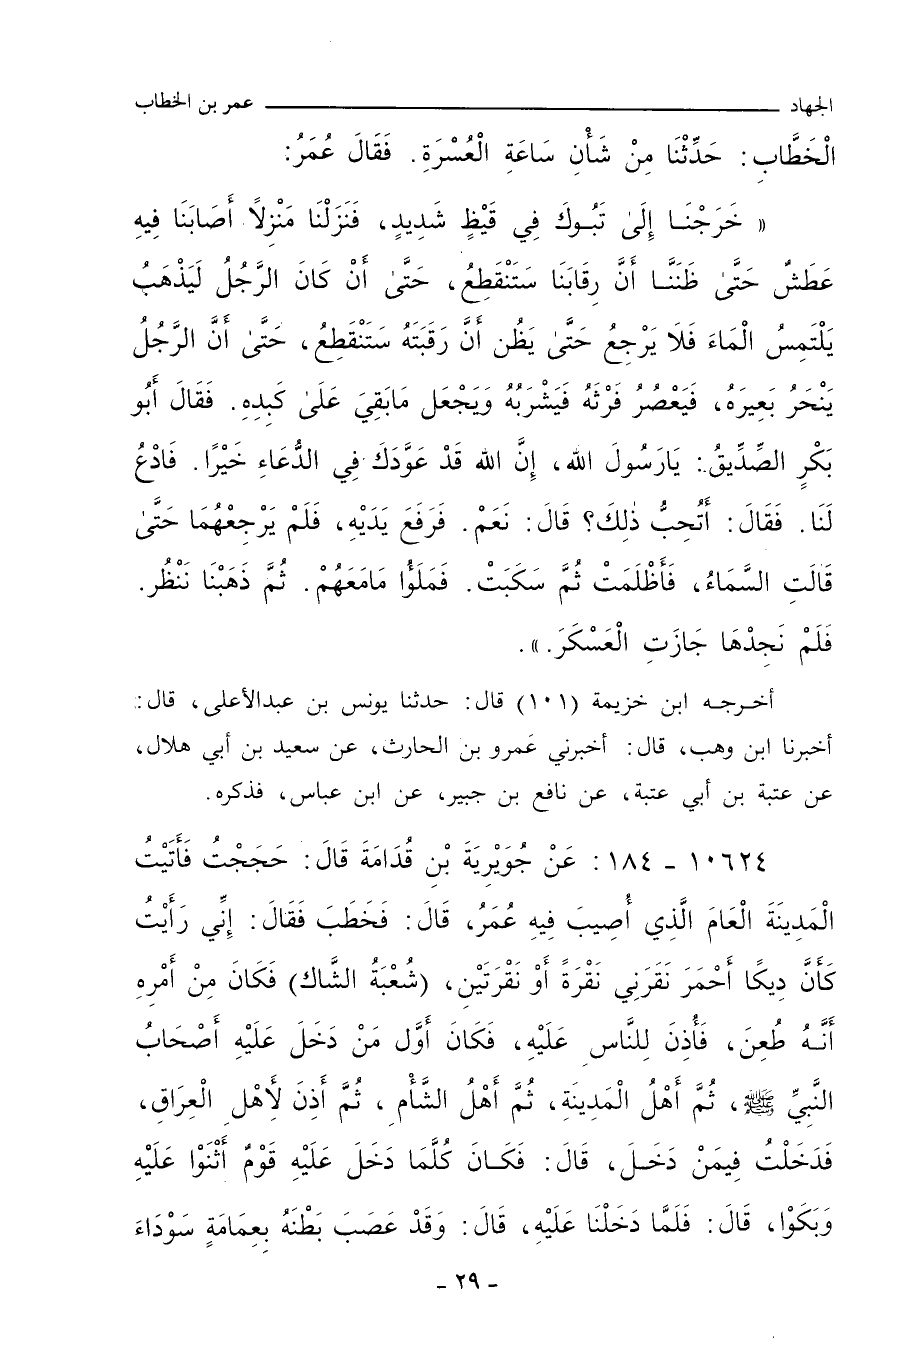 الجهاد ــــــــــــــــــــــــــــ عمر بن الخطاب
الْخَطَّابِ: حَدِّثْنَا مِنْ شَأْنِ سَاعَةِ الْعُسْرَةِ. فَقَالَ عُمَرُ:
« خَرَجْنَـا إِلَىٰ تَبُـوكَ فِي قَيْظٍ شَدِيدٍ، فَنَزَلْنَا مَنْزِلاً أَصَابَنَا فِيهِ
عَطَشٌ حَتَّىٰ ظَنَنَّـا أَنَّ رِقَابَنَا سَتَنْقَطِعُ، حَتَّىٰ أَنْ كَانَ الرَّجُلُ لَيَذْهَبُ
يَلْتَمِسُ الْمَاءَ فَلَا يَرْجِعُ حَتَّىٰ يَظُن أَنَّ رَقَبَتَهُ سَتَنْقَطِعُ، حَتَّىٰ أَنَّ الرَّجُلُ
يَنْحَرُ بَعِيرَهُ، فَيَعْصُرُ فَرْثَهُ فَيَشْرَبُهُ وَيَجْعَل مَابَقِيَ عَلَىٰ كَبِدِهِ. فَقَالَ أَبُو
بَكْرٍ الصِّدِّيقُ: يَارَسُولَ الله، إِنَّ الله قَدْ عَوَّدَكَ فِي الدُّعَاءِ خَيْرًا. فَادْعُ
لَنَا. فَقَالَ: أَتُحِبُّ ذٰلِكَ؟ قَالَ: نَعَمْ. فَرَفَعَ يَدَيْهِ، فَلَمْ يَرْجِعْهُمَا حَتَّىٰ
قَالَتِ السَّمَاءُ، فَأَظْلَمَتْ ثُمَّ سَكَبَتْ. فَمَلَؤُا مَامَعَهُمْ. ثُمَّ ذَهَبْنَا نَنْظُر.
فَلَمْ نَجِدْهَا جَازَتِ الْعَسْكَرَ.».
أخـرجـه ابن خزيمة (١٠١) قال: حدثنا يونس بن عبدالأعلى، قال:
أخبرنا ابن وهب، قال: أخبرني عَمرو بن الحارث، عن سعيد بن أبي هلال،
عن عتبة بن أبي عتبة، عن نافع بن جبير، عن ابن عباس، فذكره.
١٠٦٢٤ - ١٨٤: عَنْ جُوَيْرِيَةَ بْنِ قُدَامَةَ قَالَ: حَجَجْتُ فَأَتَيْتُ
الْمَدِينَةَ الْعَامَ الَّذِي أُصِيبَ فِيهِ عُمَرُ، قَالَ: فَخَطَبَ فَقَالَ: إِنِّي رَأَيْتُ
كَأَنَّ دِيكًا أَحْمَرَ نَقَرَنِي نَقْرَةً أَوْ نَقْرَتَيْنِ، (شُعْبَةُ الشَّاك) فَكَانَ مِنْ أَمْرِهِ
أَنَّـهُ طُعِنَ، فَأُذِنَ لِلنَّاسِ عَلَيْهِ، فَكَانَ أَوَّل مَنْ دَخَلَ عَلَيْهِ أَصْحَابُ
النَّبِيِّ ﷺ، ثُمَّ أَهْلُ الْمَدِينَةِ، ثُمَّ أَهْلُ الشَّأْمِ، ثُمَّ أَذِنَ لأَهْلِ الْعِرَاقِ،
فَدَخَلْتُ فِيمَنْ دَخَـلَ، قَالَ: فَكَـانَ كُلَّمَا دَخَلَ عَلَيْهِ قَوْمٌ أَثْنَوْا عَلَيْهِ
وَبَكَوْا، قَالَ: فَلَمَّا دَخَلْنَا عَلَيْهِ، قَالَ: وَقَدْ عَصَبَ بَطْنَهُ بِعِمَامَةٍ سَوْدَاءَ
- ٢٩ -